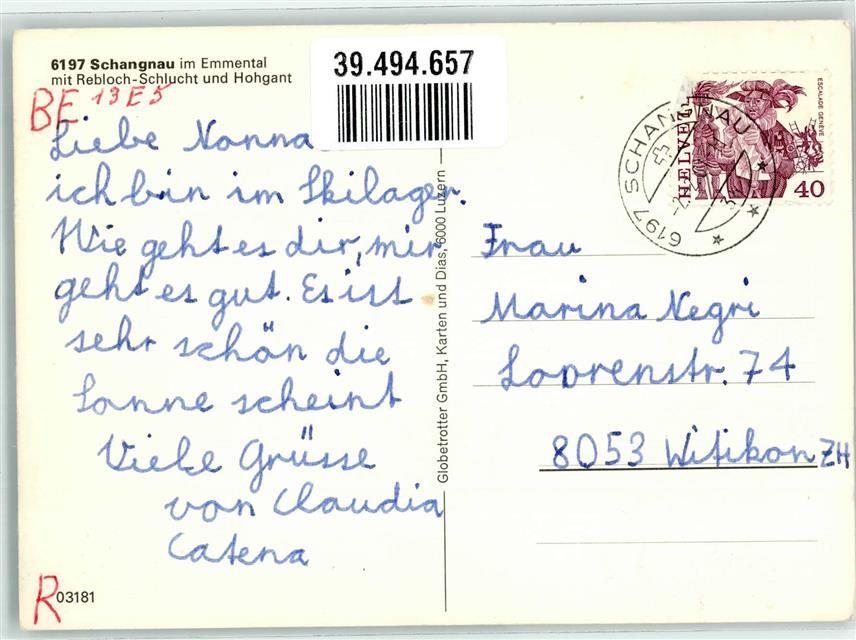 6197 Schangnau im Emmental
mit Rebloch-Schlucht und Hohgant
39.494.657
BE 13E5
Liebe Nonna
ich bin im Skilager.
Wie geht es dir, mir
geht es gut. Es ist
sehr schön die
Sonne scheint
Viele Grüsse
von Claudia
Catena
R
03181
Globetrotter GmbH, Karten und Dias, 6000 Luzern
6197 SCHANGNAU
HELVETIA
ESCALADE GENÈVE
40
Frau
Marina Negri
Loorenstr. 74
8053 Witikon ZH